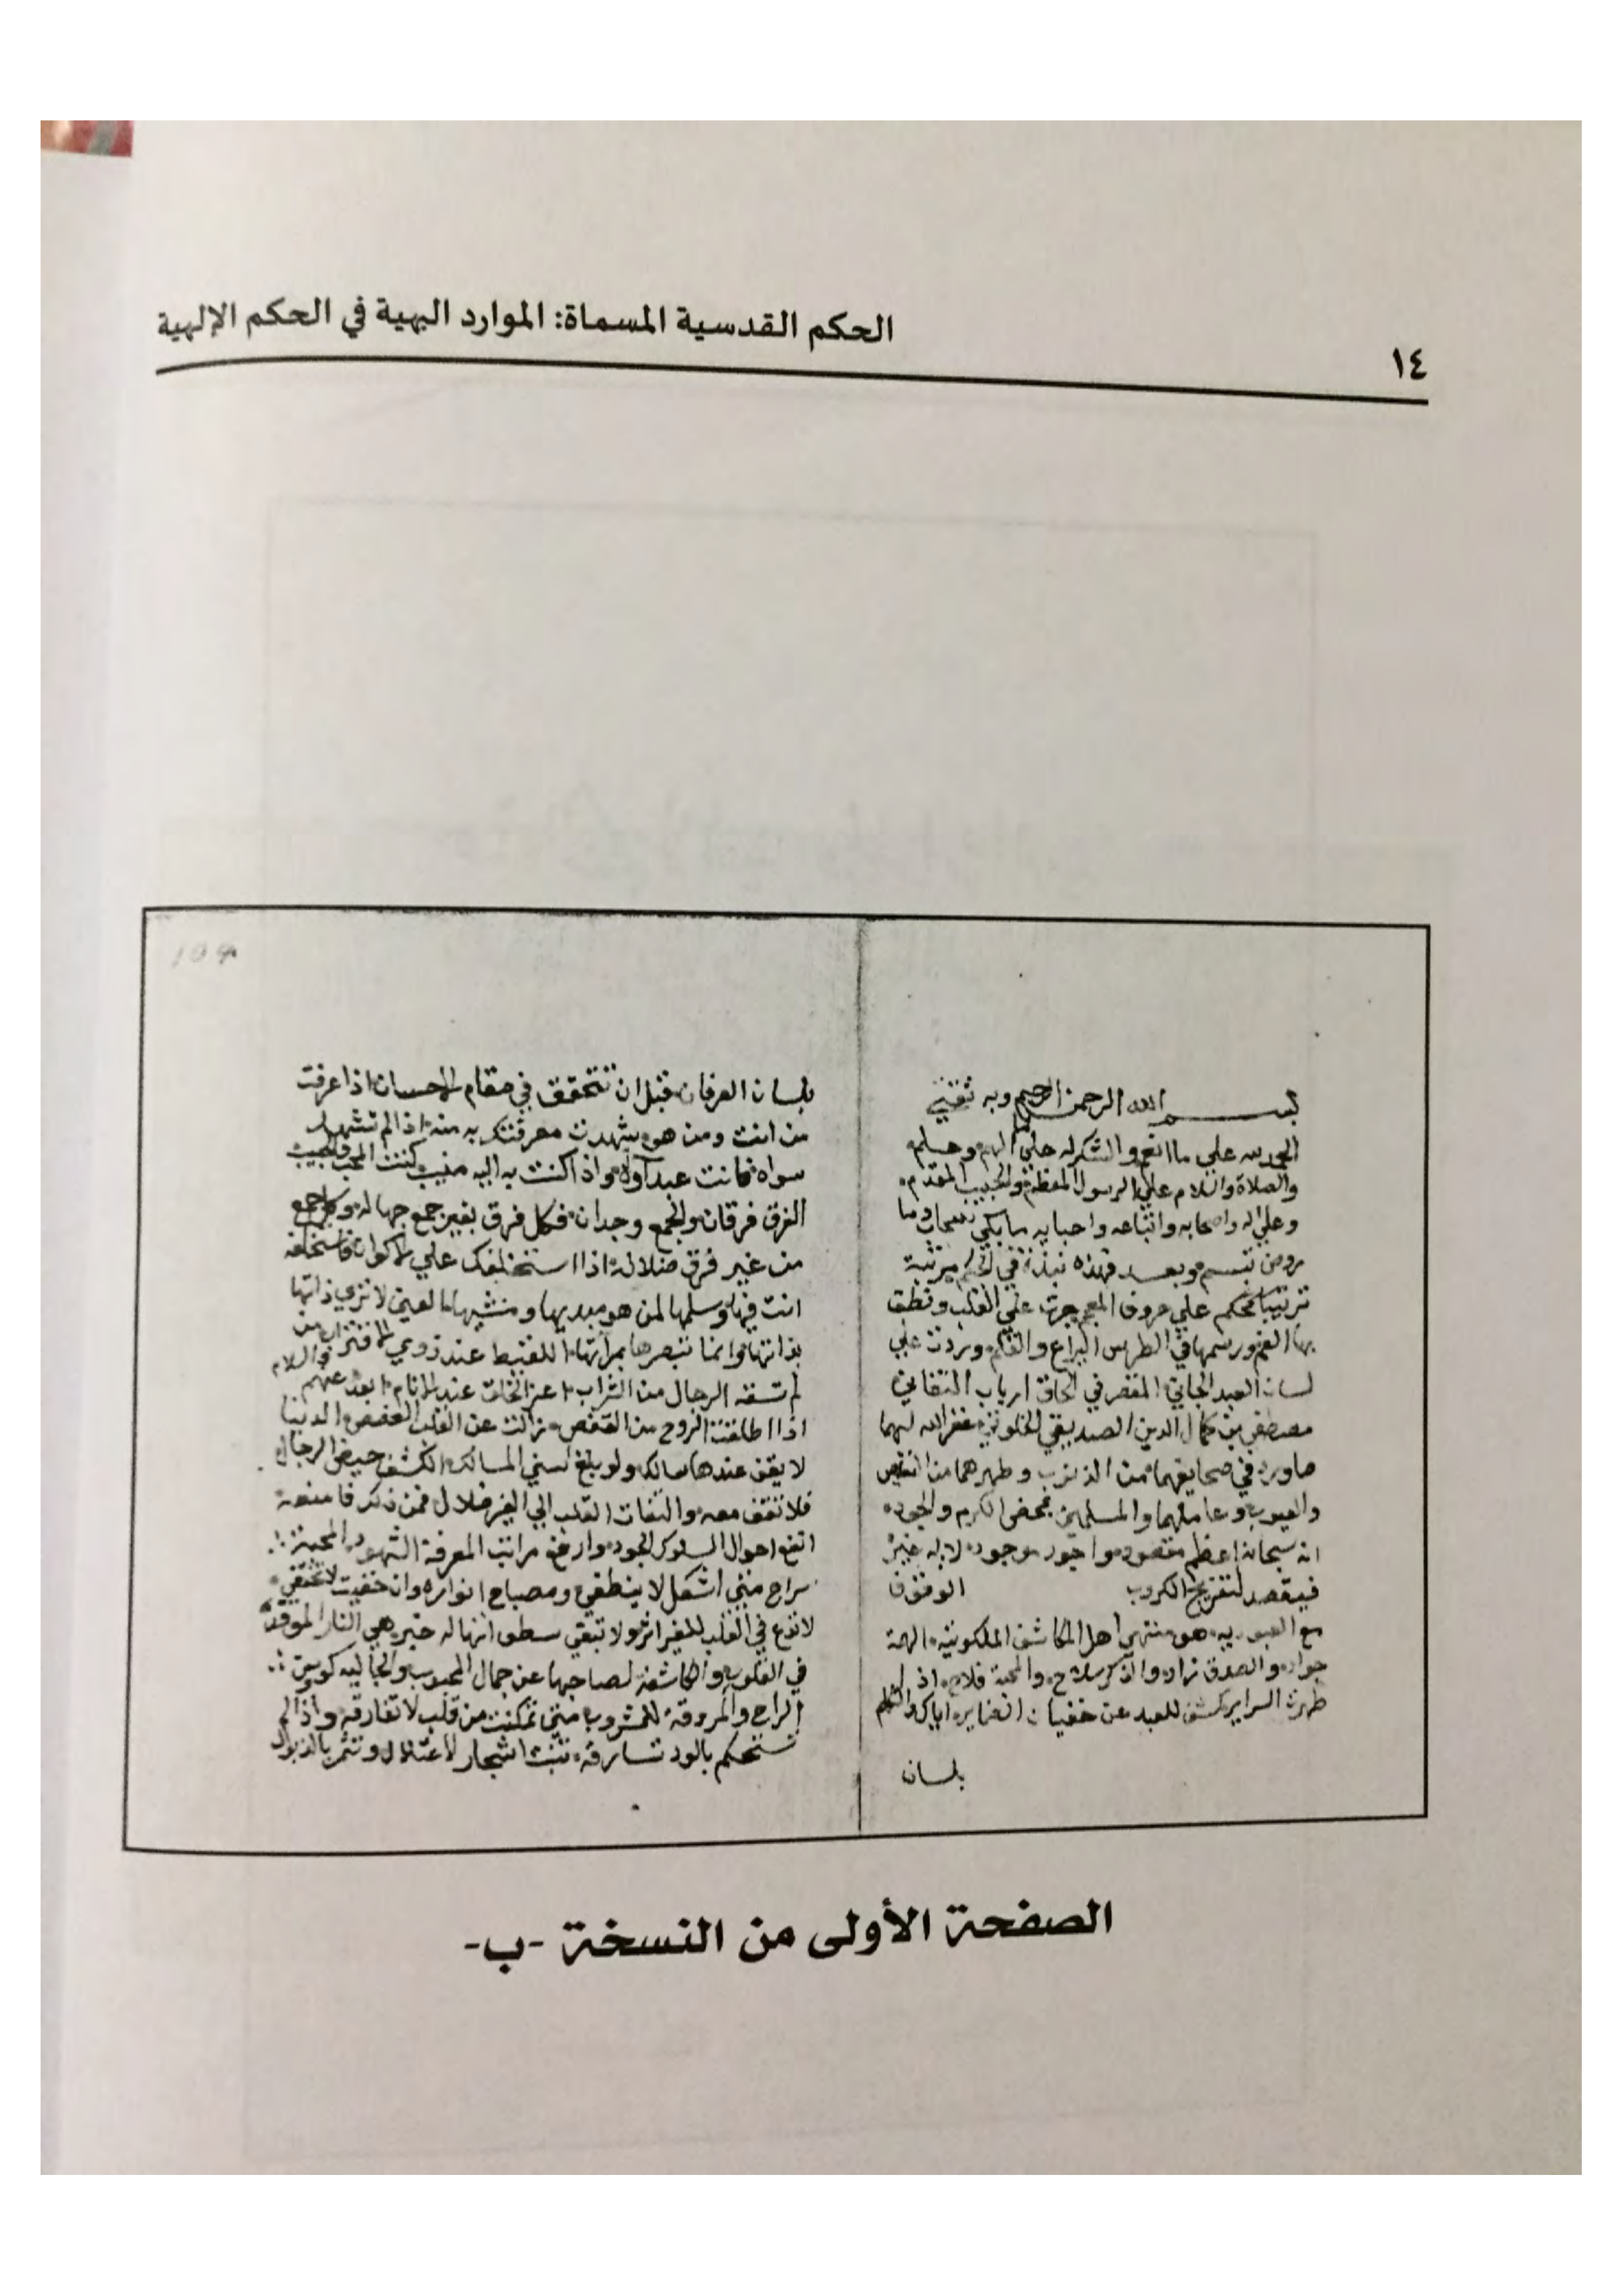 الحكم القدسية المسماة: الموارد البهية في الحكم الإلهية
١٤
بسم الله الرحمن الرحيم وبه ثقتي
الحمد لله علي ما انعم والشكر له علي ما الهم وسلم
والصلاة والسلام علي الرسول المعظم والحبيب المقدم
وعلي اله واصحابه واتباعه واحبابه ما بكي وما
تبسم وبعد فهذه نبذة في الحكم مرتبة
ترتيبا محكم علي حروف المعجم جرت علي القلب ونطق
بها الفم ورسمها في الطرس اليراع والقلم وردت علي
لسان العبد الجاني المقصر في لحاق ارباب
مصطفي بن كمال الدين الصديقي الخلوتي غفر الله لهما
ما في صحايفهما من الذنوب وطهرهما من النقص
والعيوب وعاملهما والمسلمين بمحض الكرم والجود
انه سبحانه اعظم مقصود واجود موجود لا اله غيره
فيقصد لتفريج الكروب الوقوف
مع العبودية هو منتهي اهل المكاشف الملكوتية الهمة
جواد والصدق زاد والذكر سلاح والمحبة فلاح اذا
طهرت السراير كشف للعبد عن خفيات الضماير اياك والتكلم
بلسان
بلسان العرفان قبل ان تتحقق في مقام الاحسان اذا عرفت
من انت ومن هو شهدت معرفتك به منه اذا لم تشهد
سواه فانت عبد اواه واذا كنت به اليه منيب كنت المحب والحبيب
الفرق فرقان والجمع وجدان فكل فرق بغير جمع جهالة وكل جمع
من غير فرق ضلالة اذا استخلفك علي الاكوان فاستخلفه
انت فيها وسلمها لمن هو مبديها ومنشيها العين لا تري ذاتها
بذاتها وانما تبصرها بمرآتها
لم تسقه الرجال من الشراب اعز الخلق عند الانام ابعدهم عنهم
اذا اطلقت الروح من القفص زالت عن القلب الغصص الدنيا
لا يقف عندها سالك ولو بلغ اسني المسالك الكشف حيض الرجال
فلا تقف معه والتفات القلب الي الغير ضلال فمن ذكر فامنعه
انفع احوال السلوك الجود وارفع مراتب المعرفة الشهود المحبة
سراج متي اشعل لا ينطفي ومصباح انواره وان خفيت لا تختفي
لا تدع في القلب للغير اثر ولا تبقي هي النار الموقدة
في القلوب والكاشفة لصاحبها عن جمال المحبوب والجالية كوس
الراح والمروقة للمشروب متي تمكنت من قلب لا تفارقه واذا لم
تستحكم بالود تنبت اشجار الاعتلال وتثمر بالذبول
الصفحة الأولى من النسخة -ب-